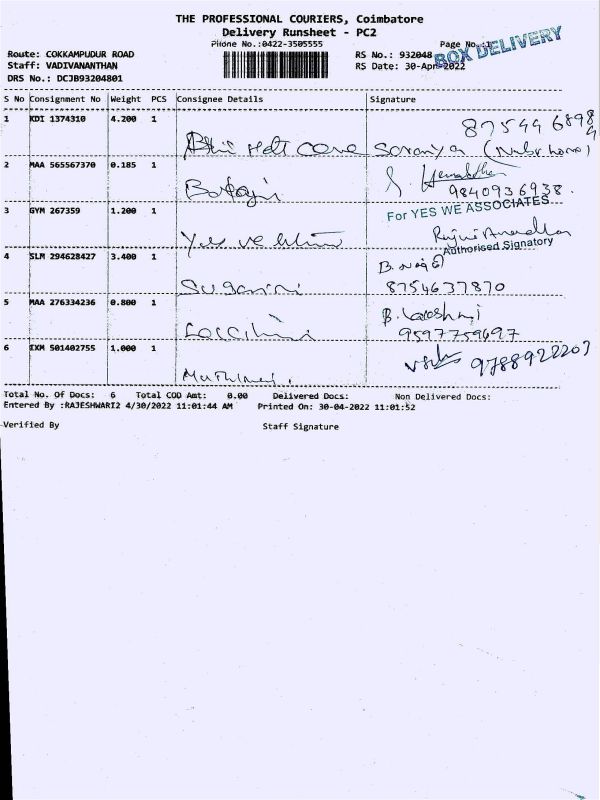 THE PROFESSIONAL COURIERS, Coimbatore
Delivery Runsheet - PC2
Phone No.:0422-3505555 Page No.:1
BOX DELIVERY
Route: COKKAMPUDUR ROAD RS No.: 932048
Staff: VADIVANANTHAN RS Date: 30-Apr-2022
DRS No.: DCJB93204801
S No Consignment No Weight PCS Consignee Details Signature
1 KDI 1374310 4.200 1
care Saranya
2 MAA 565567370 0.185 1
Balaji 9840936938.
3 GYM 267359 1.200 1 For YES WE ASSOCIATES
Yes we
Authorised Signatory
4 SLM 294628427 3.400 1
Suganini 8754637870
5 MAA 276334236 0.800 1
9597759697
6 IXM 501402755 1.000 1 9788922203
Total No. Of Docs: 6 Total COD Amt: 0.00 Delivered Docs: Non Delivered Docs:
Entered By :RAJESHWARI2 4/30/2022 11:01:44 AM Printed On: 30-04-2022 11:01:52
Verified By Staff Signature